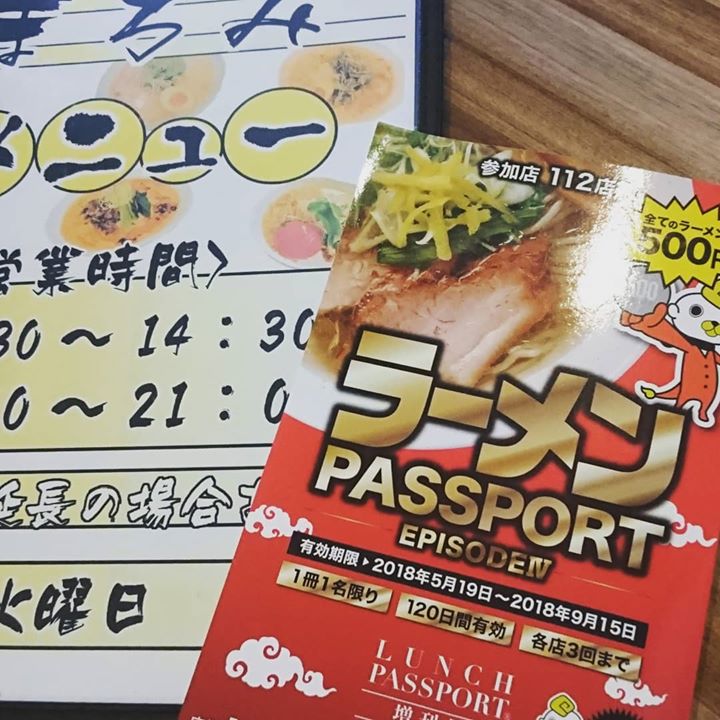 まろみ
メニュー
営業時間〉
30〜14：30
0〜21：0
延長の場合
火曜日
参加店 112店
全てのラーメン
500円
ラーメン
PASSPORT
EPISODEⅣ
有効期限▶2018年5月19日〜2018年9月15日
1冊1名限り
120日間有効
各店3回まで
LUNCH
PASSPORT
増刊